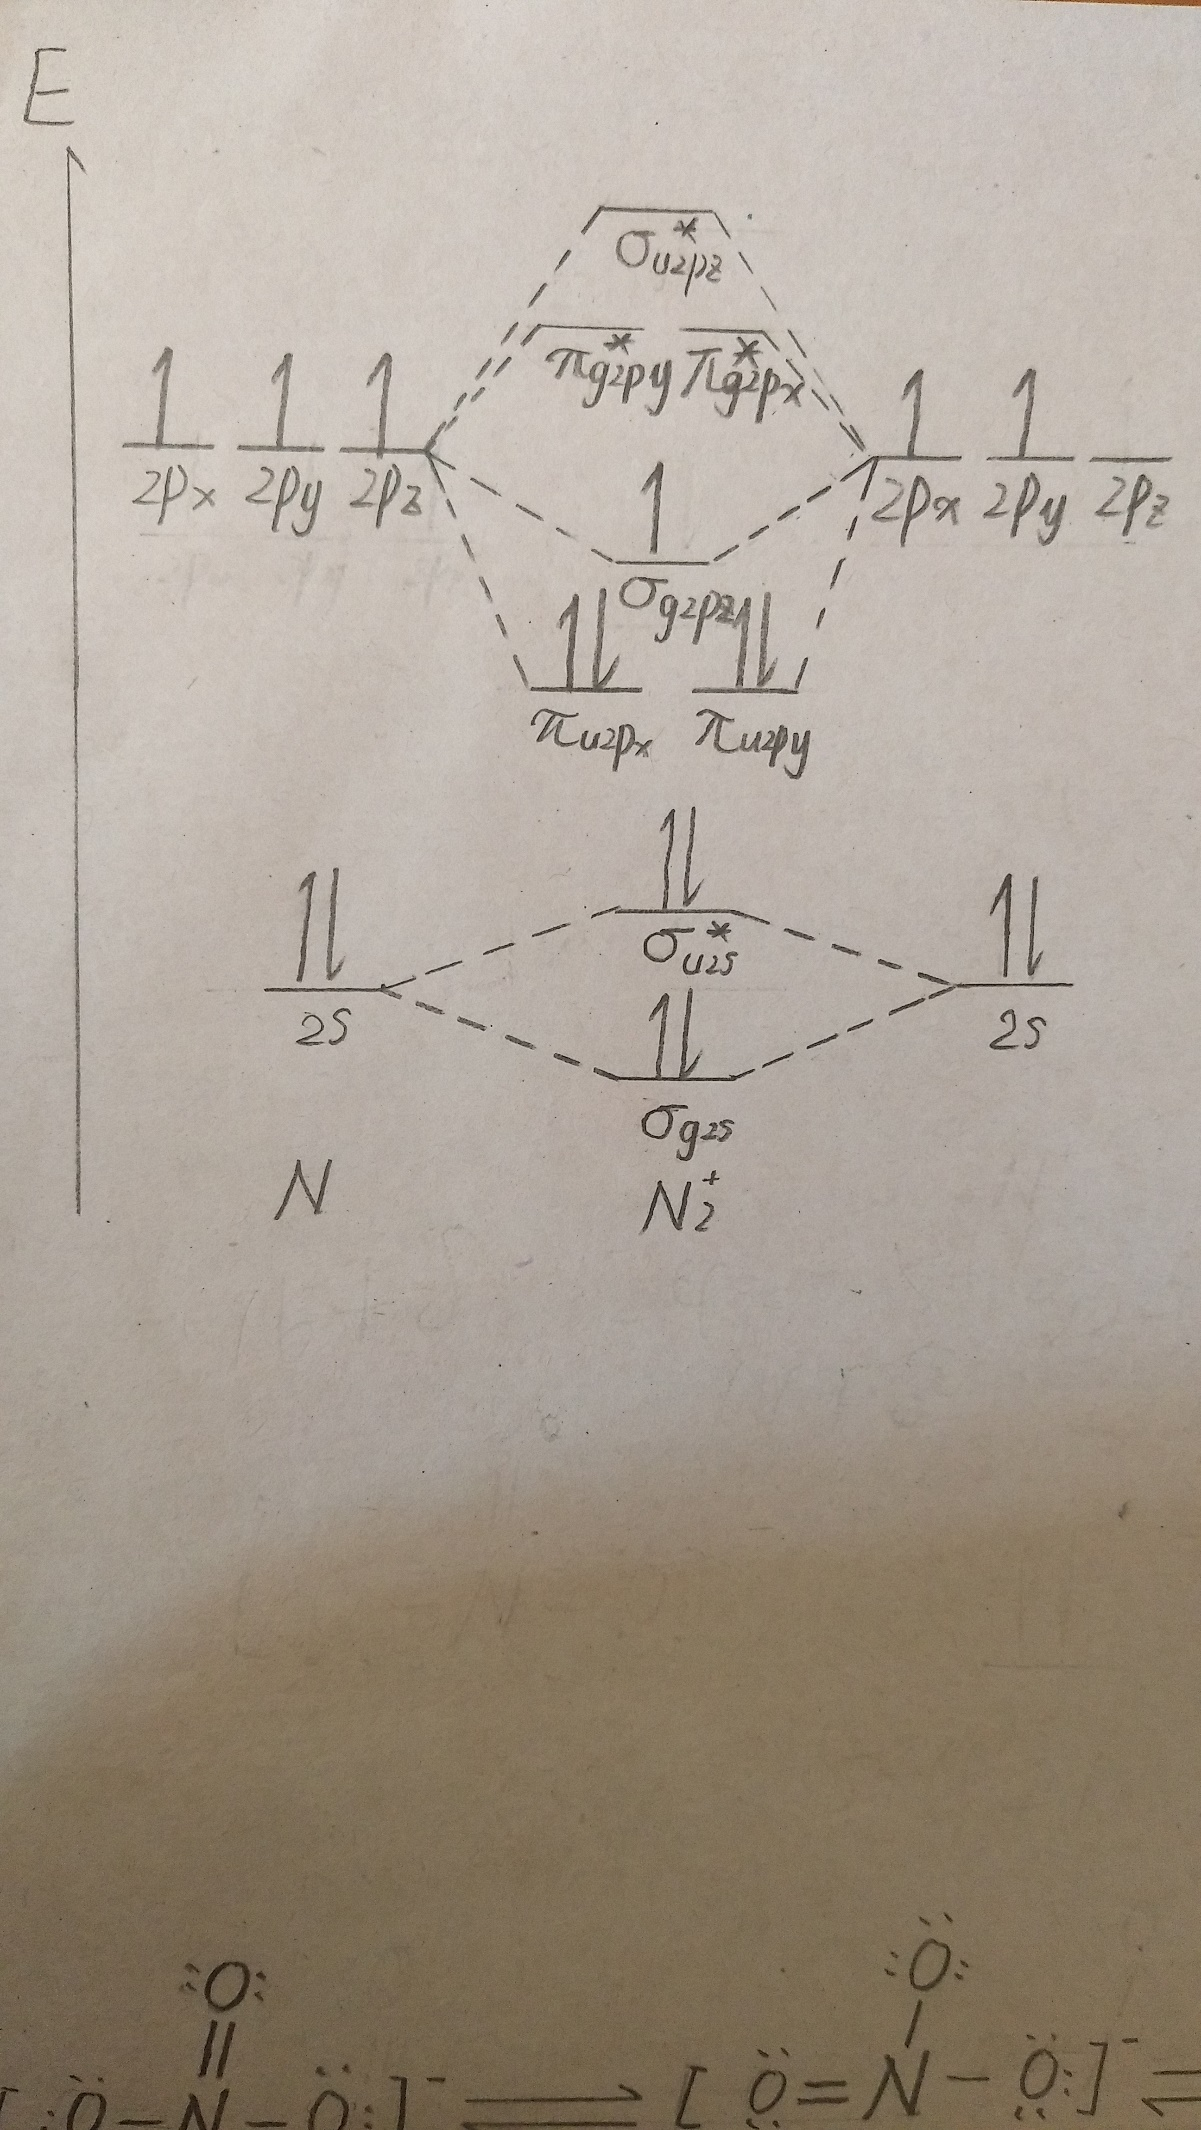 E
σ*u2pz
π*g2py π*g2px
2px 2py 2pz
2px 2py 2pz
σg2pz
πu2px πu2py
σ*u2s
2s
2s
σg2s
N
N2+
:Ö:
:O:
[:Ö-N-Ö:]- ⇌ [Ö=N-Ö:]- ⇌